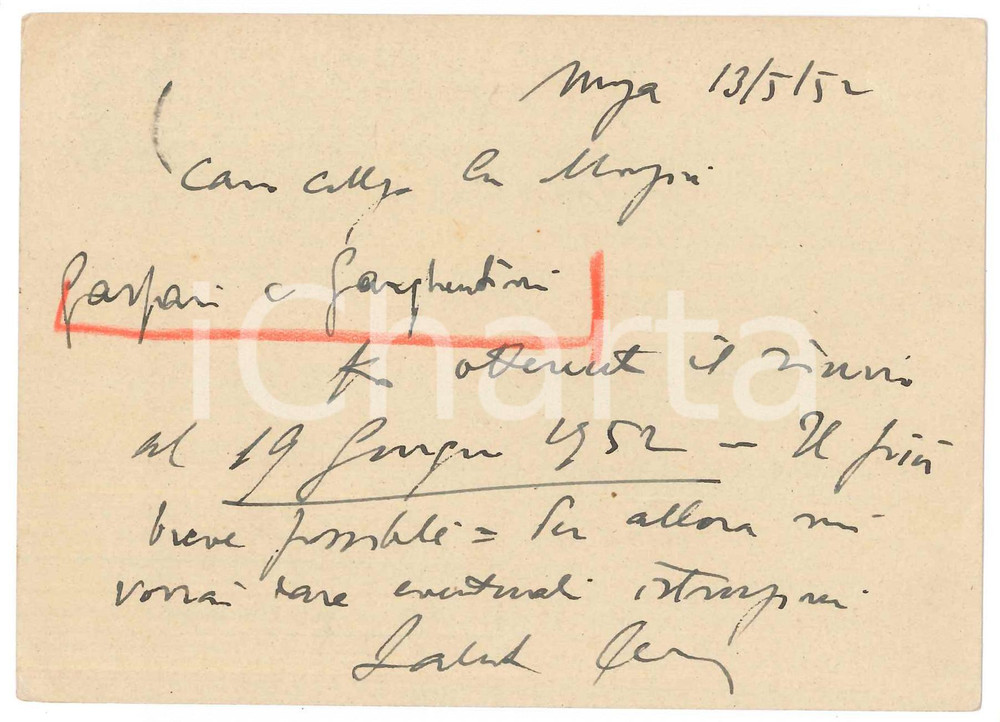 13/5/52
Caro collega
Gaspari e Garghentini
Ho ottenuto il rinvio
al 19 Giugno 1952 - Il più
breve possibile = Per allora mi
vorrai dare eventuali istruzioni
Saluti
iCharta